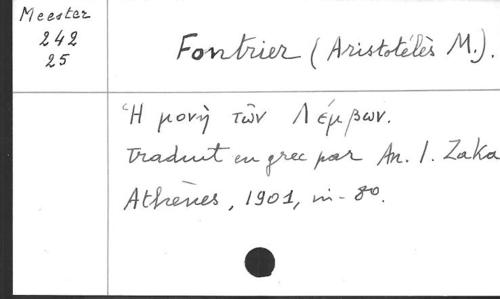 Meester
242
25
Fontrier (Aristotélès M.).
Ἡ μονὴ τῶν Λέμβων.
Traduit en grec par An. I. Zaka
Athènes, 1901, in-8º.